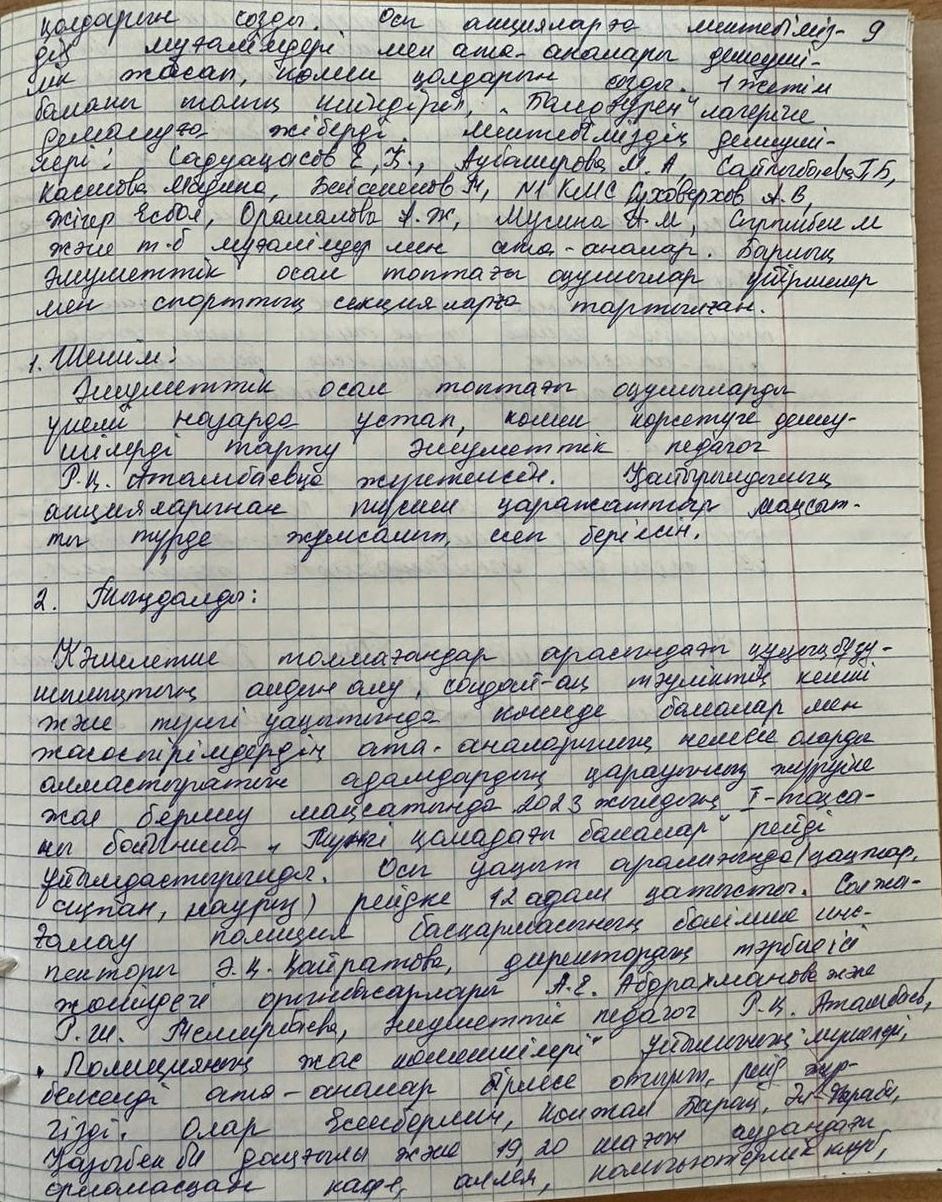 қолдарын созды. Осы акцияларға мектебіміз- 9
дің мұғалімдері мен ата-аналары демеуші-
лік жасап, көмек қолдарын созды. 1 жетім
баланы толық киіндіріп, „Балдәурен" лагеріне
демалуға жіберді. Мектебіміздің демеуші-
лері: Садуақасов Е, Б., Аубакирова М. А, Сайлыбаева Г Б,
Касенова Мадина, Бейсенов Н, М1 КМС Суховерхов А. В,
Жігер Есбол, Орамалова А. Ж, Мусина А. М,
және т.б мұғалімдер мен ата-аналар. Барлық
әлуметтік осал топтағы оқушылар үйірмелер
мен спорттық секцияларға тартылған.
1. Шешім:
Әлуметтік осал топтағы оқушыларды
үнемі назарда ұстап, көмек көрсетуге демеу-
шілерді тарту әлуметтік педагог
Р.Қ. Атамбаевқа жүктелсін. Қайырымдылық
акцияларынан түскен қаражаттар мақсат-
ты түрде жұмсалып, есеп берілсін.
2. Тыңдалды:
Кәмелетке толмағандар арасындағы құқық бұзу-
шылықтың алдын алу, сондай-ақ тәуліктің кешкі
және түнгі уақытында көшеде балалар мен
жасөспірімдердің ата-аналарының немесе оларды
алмастыратын адамдардың қарауының жүруіне
жол бермеу мақсатында 2023 жылдың I-тоқса-
ны бойынша „Түнгі қаладағы балалар" рейді
ұйымдастырылды. Осы уақыт аралығында (қаңтар,
ақпан, наурыз) рейдке 12 адам қатысты.
полиция басқармасының бөлімше инс-
пекторы Э.Қ. Қайратова, директордың тәрбие ісі
жөніндегі орынбасарлары А.Е. Абдрахманова және
Р.Ш. Темирбаева, әлуметтік педагог Р.Қ. Атамбаев,
„Полицияның жас көмекшілері" ұйымының мүшелері,
белсенді ата-аналар бірлесе отырып, рейд жүр-
гізді. Олар Есенберлин, Қожған Барақ, Әл-Фараби,
Қазыбек би даңғылы және 19, 20 шағын аудандағы
орналасқан кафе, аллея, компьютерлік клуб,